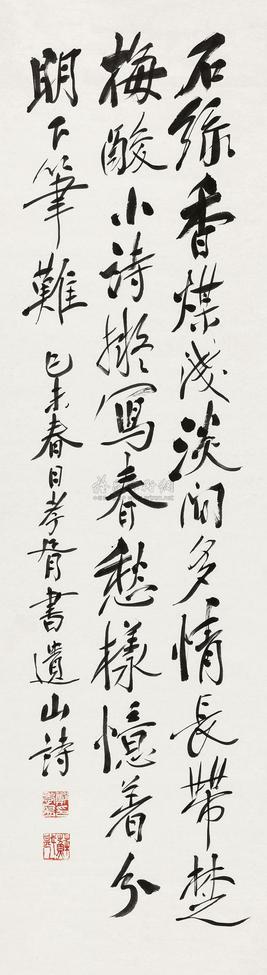 石綠香煤淺淡間多情長帶楚
梅酸小詩擬寫春愁樣憶着分
明下筆難 己未春日孝胥書遺山詩